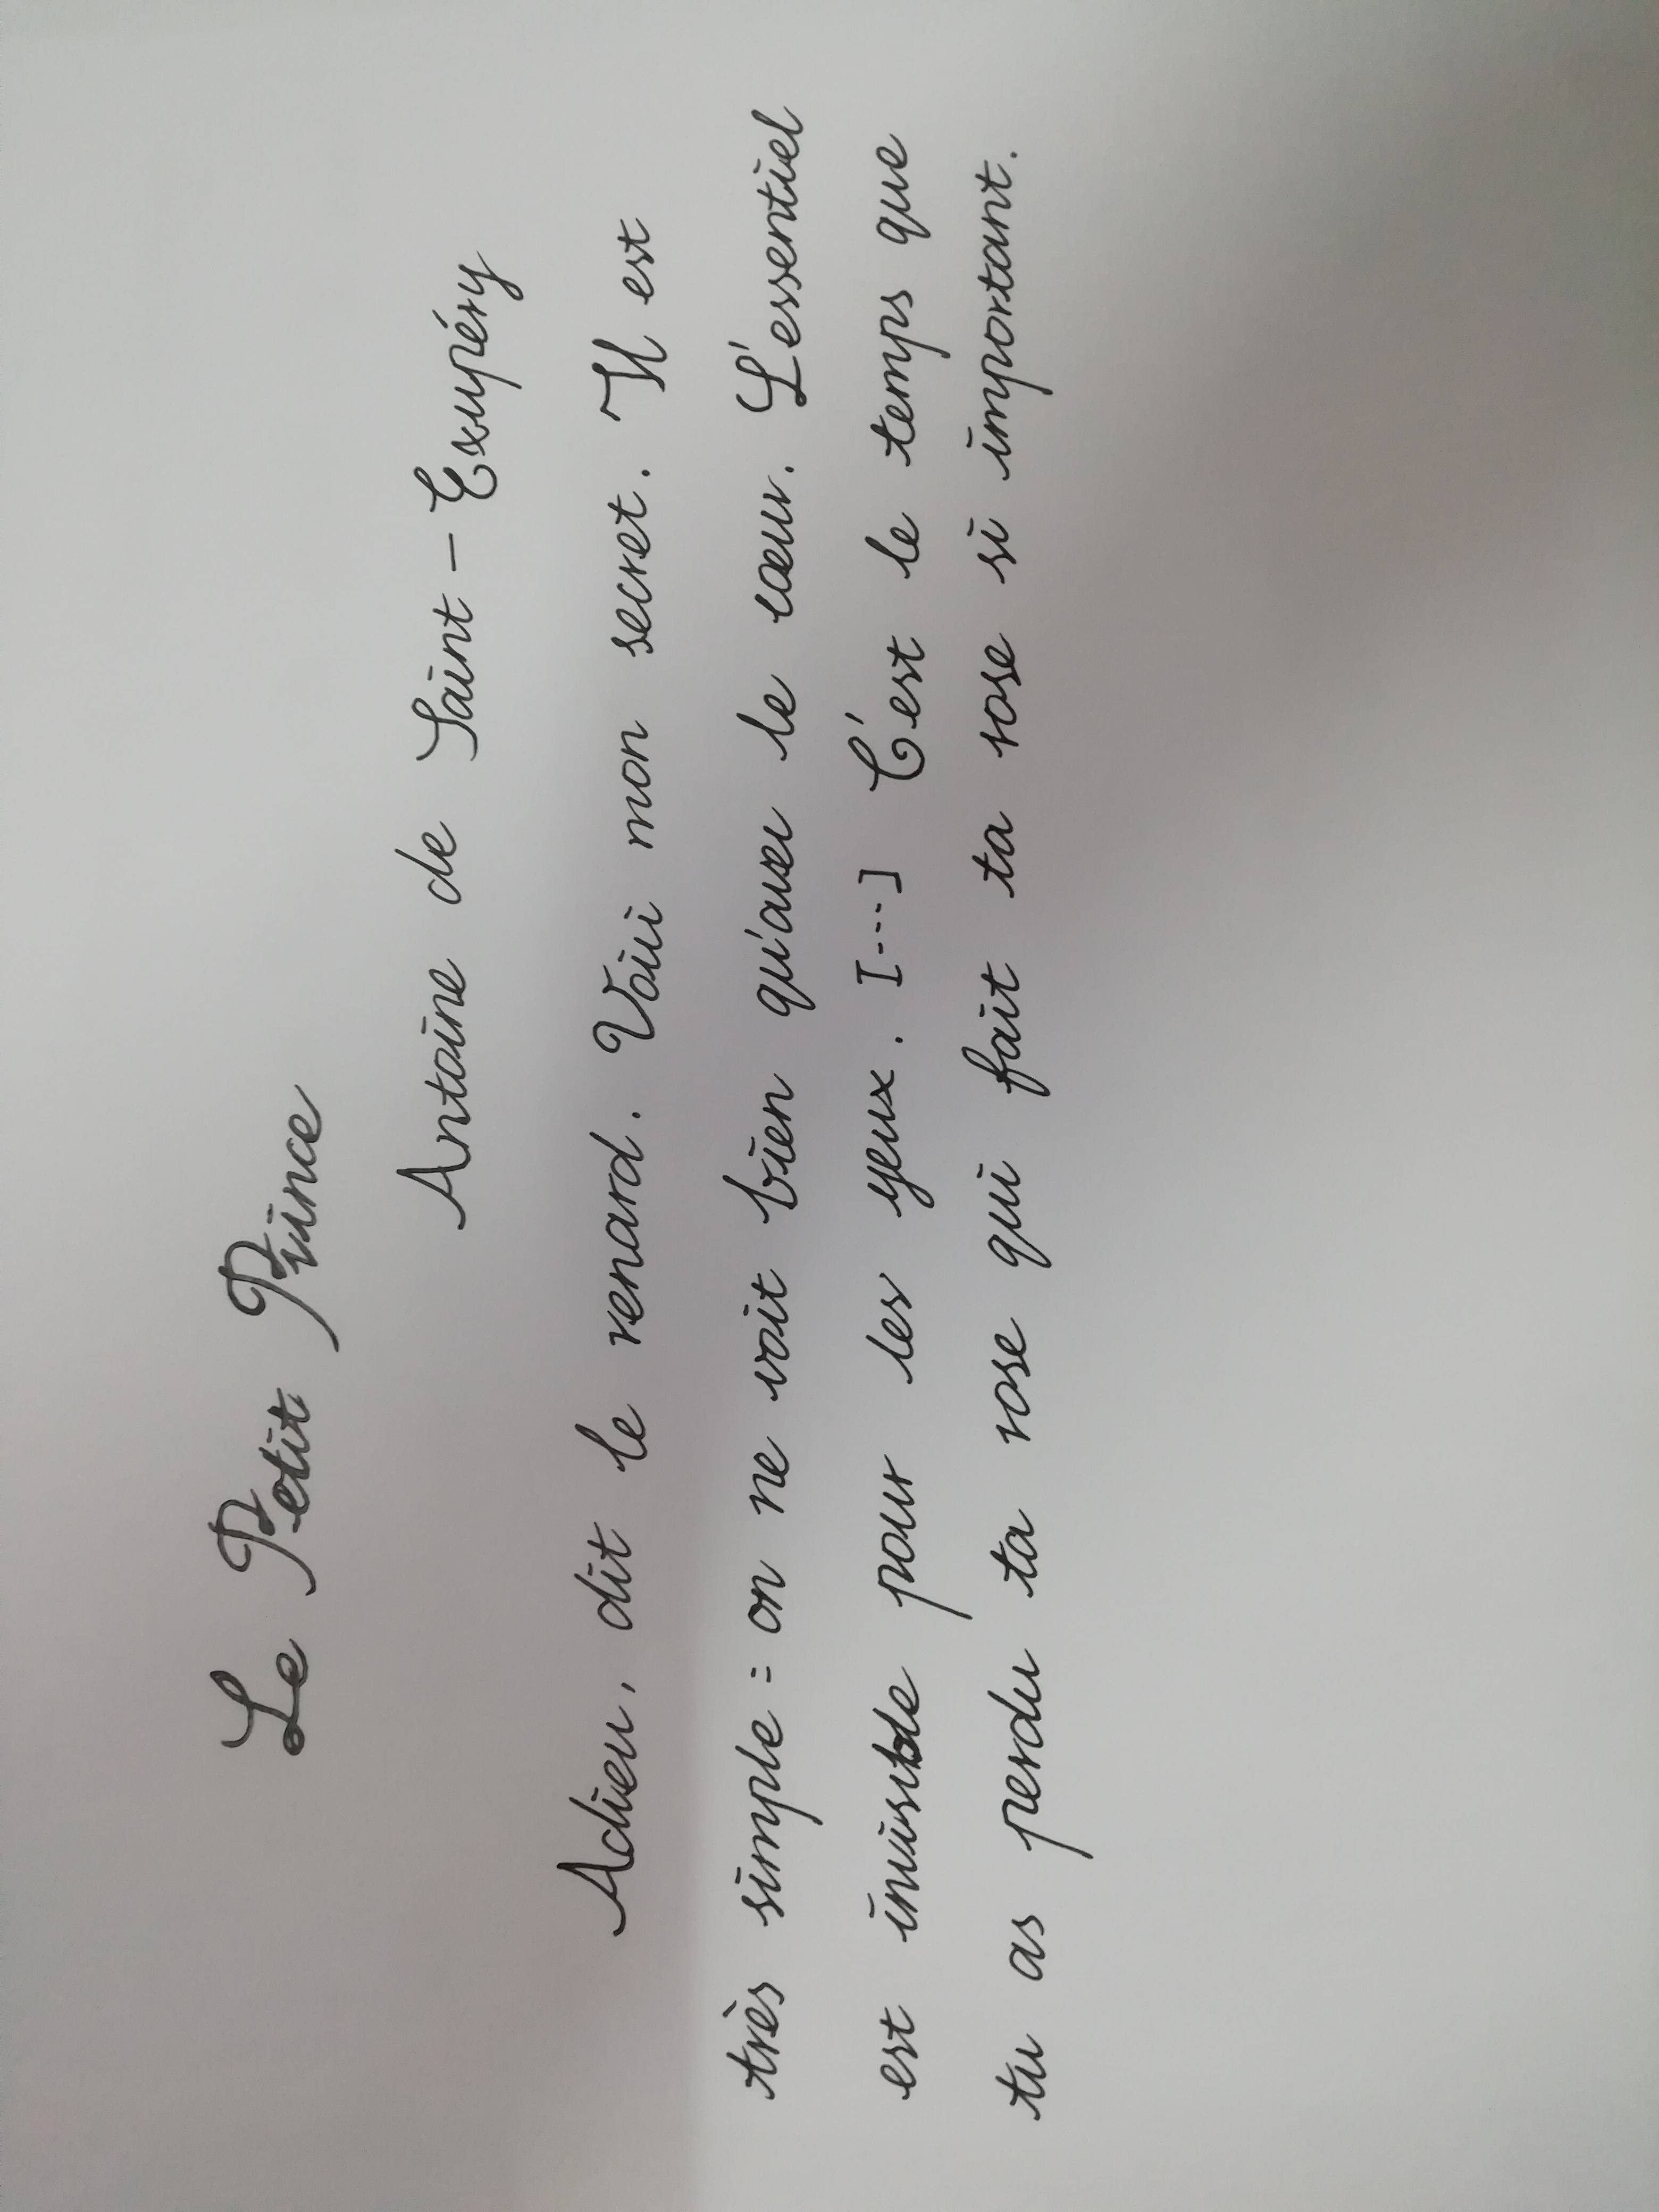 Le Petit Prince
Antoine de Saint-Exupéry
Adieu, dit le renard. Voici mon secret. Il est
très simple : on ne voit bien qu'avec le cœur. L'essentiel
est invisible pour les yeux. [...] C'est le temps que
tu as perdu ta rose qui fait ta rose si important.